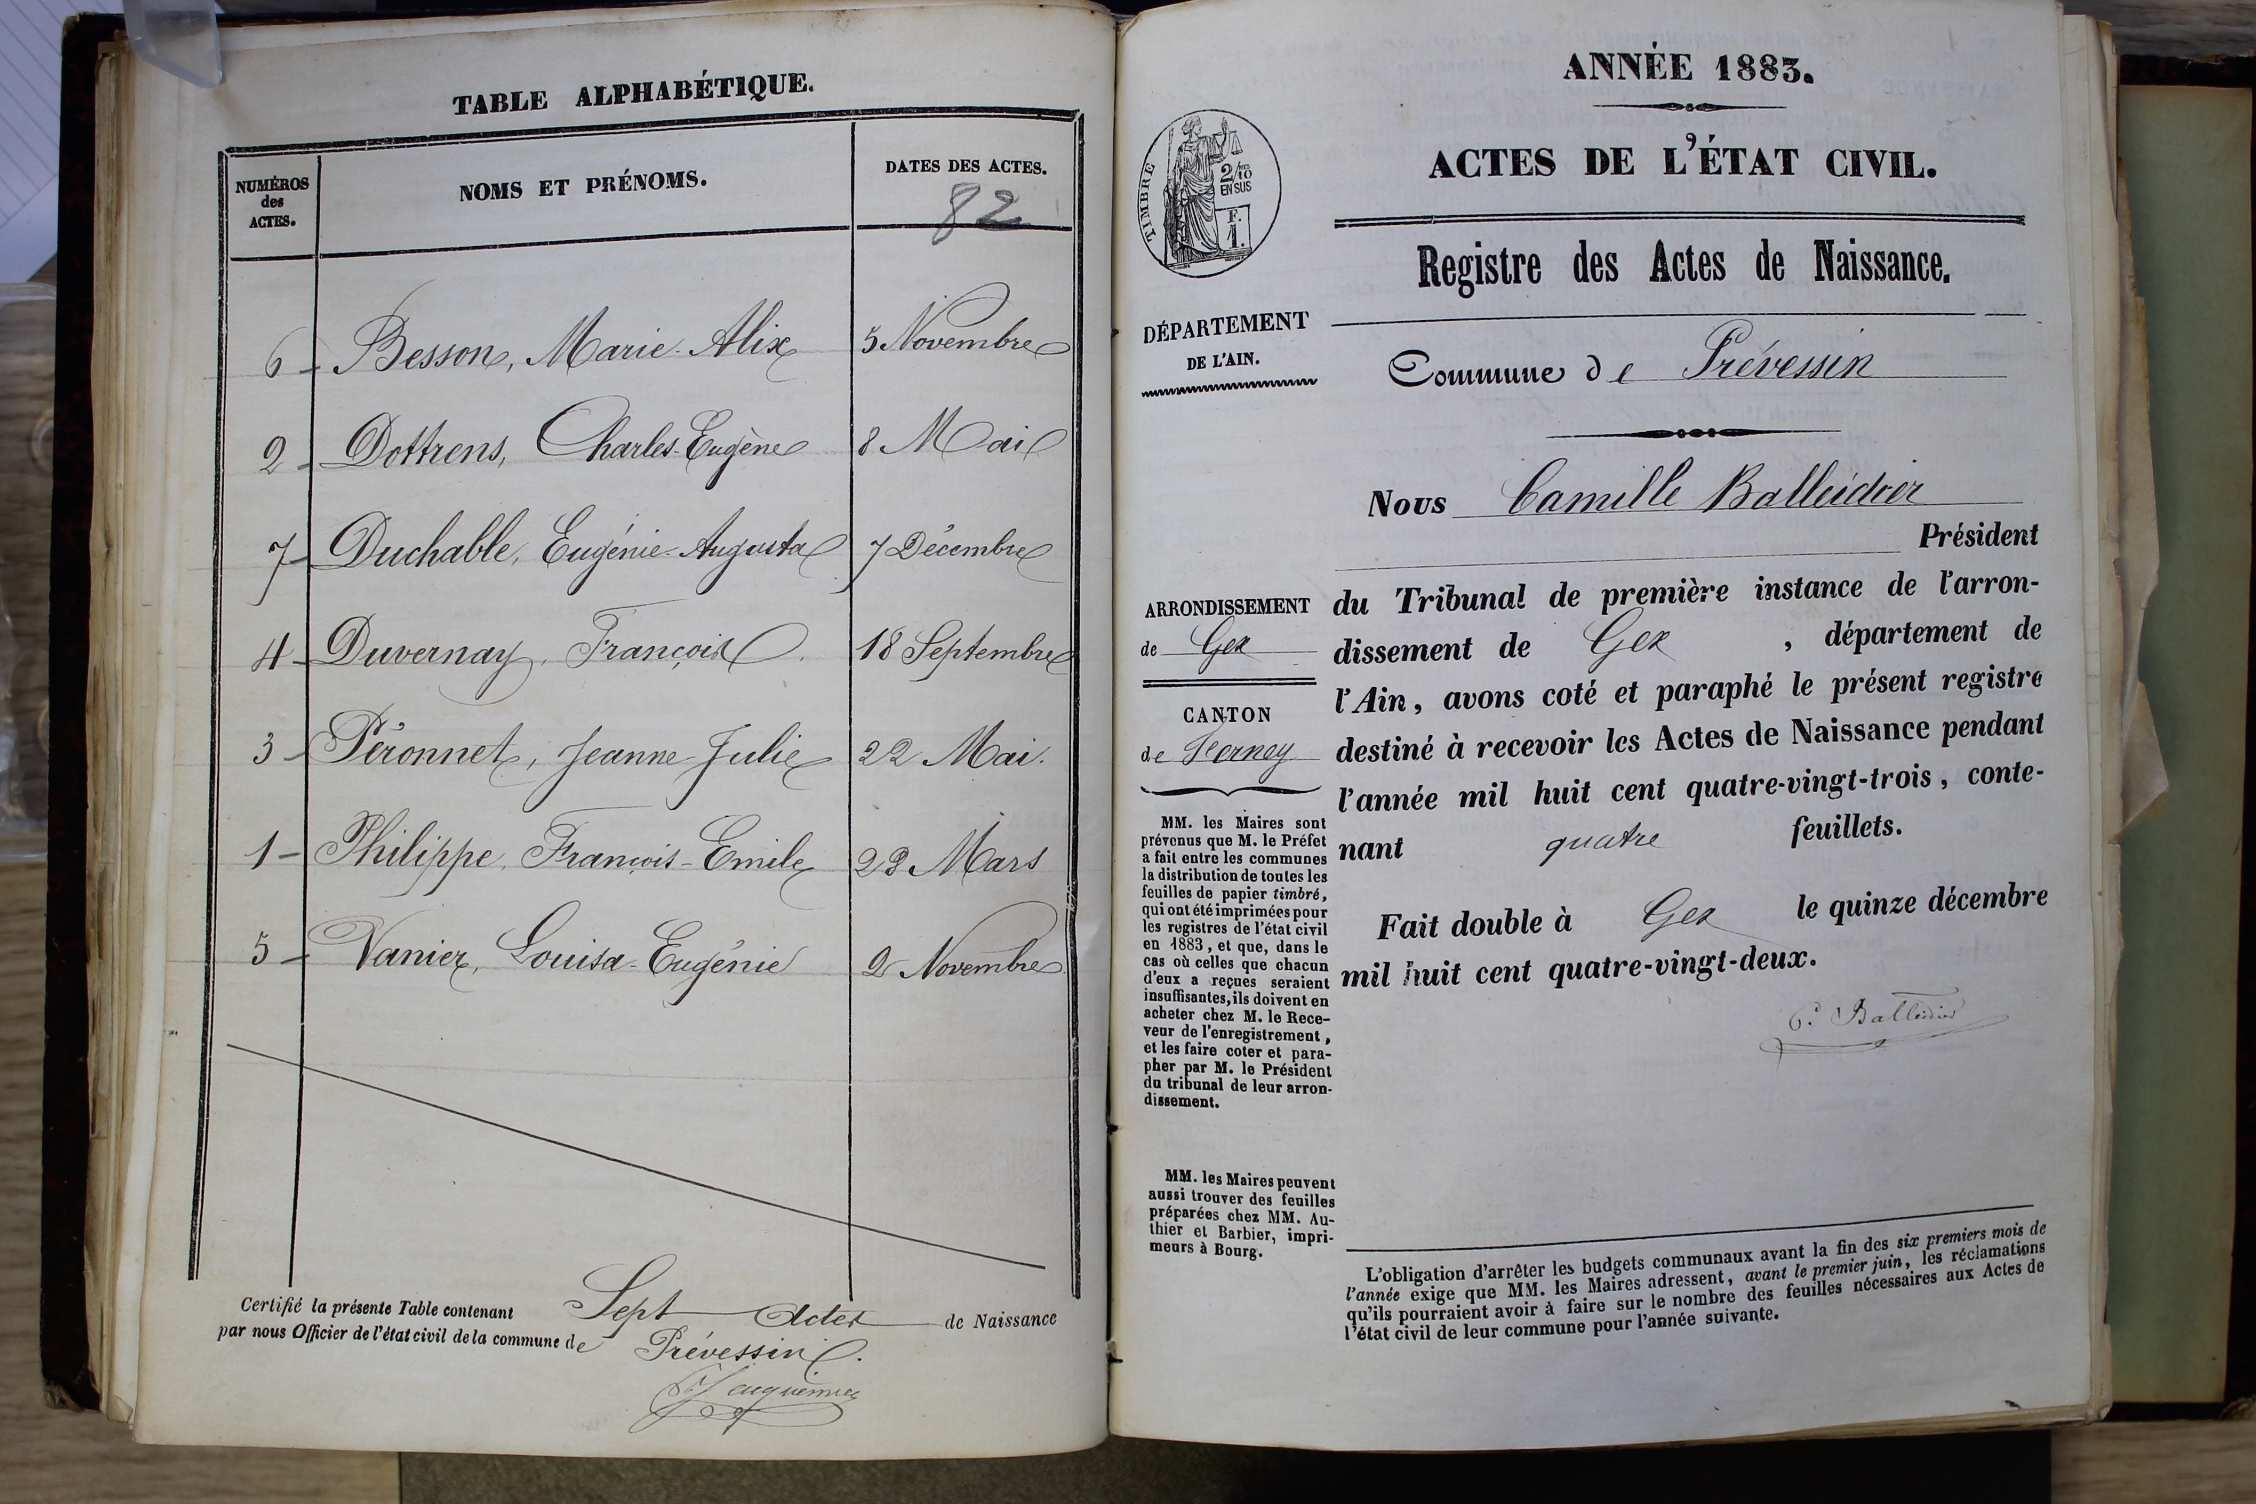 TABLE ALPHABÉTIQUE.
NUMÉROS des ACTES.
NOMS ET PRÉNOMS.
DATES DES ACTES.
82
6 - Besson, Marie-Alix 5 Novembre
2 - Dottrens, Charles-Eugène 8 Mai
7 - Duchable, Eugénie-Augusta 7 Décembre
4 - Duvernay, François 18 Septembre
3 - Péronnet, Jeanne-Julie 22 Mai.
1 - Philippe, François-Emile 23 Mars
5 - Vanier, Louisa-Eugénie 2 Novembre
Certifié la présente Table contenant Sept Actes de Naissance
par nous Officier de l'état civil de la commune de Prévessin.
ANNÉE 1883.
ACTES DE L'ÉTAT CIVIL.
TIMBRE
2/10
EN SUS
F.
1.
Registre des Actes de Naissance.
DÉPARTEMENT
DE L'AIN.
Commune de Prévessin
Nous Camille Balleidier
Président
ARRONDISSEMENT
de Gex
CANTON
de Ferney
du Tribunal de première instance de l'arron-
dissement de Gex , département de
l'Ain, avons coté et paraphé le présent registre
destiné à recevoir les Actes de Naissance pendant
l'année mil huit cent quatre-vingt-trois, conte-
nant quatre feuillets.
Fait double à Gex le quinze décembre
mil huit cent quatre-vingt-deux.
C. Balleidier
MM. les Maires sont
prévenus que M. le Préfet
a fait entre les communes
la distribution de toutes les
feuilles de papier timbré,
qui ont été imprimées pour
les registres de l'état civil
en 1883, et que, dans le
cas où celles que chacun
d'eux a reçues seraient
insuffisantes, ils doivent en
acheter chez M. le Rece-
veur de l'enregistrement,
et les faire coter et para-
pher par M. le Président
du tribunal de leur arron-
dissement.
MM. les Maires peuvent
aussi trouver des feuilles
préparées chez MM. Au-
thier et Barbier, impri-
meurs à Bourg.
L'obligation d'arrêter les budgets communaux avant la fin des six premiers mois de
l'année exige que MM. les Maires adressent, avant le premier juin, les réclamations
qu'ils pourraient avoir à faire sur le nombre des feuilles nécessaires aux Actes de
l'état civil de leur commune pour l'année suivante.